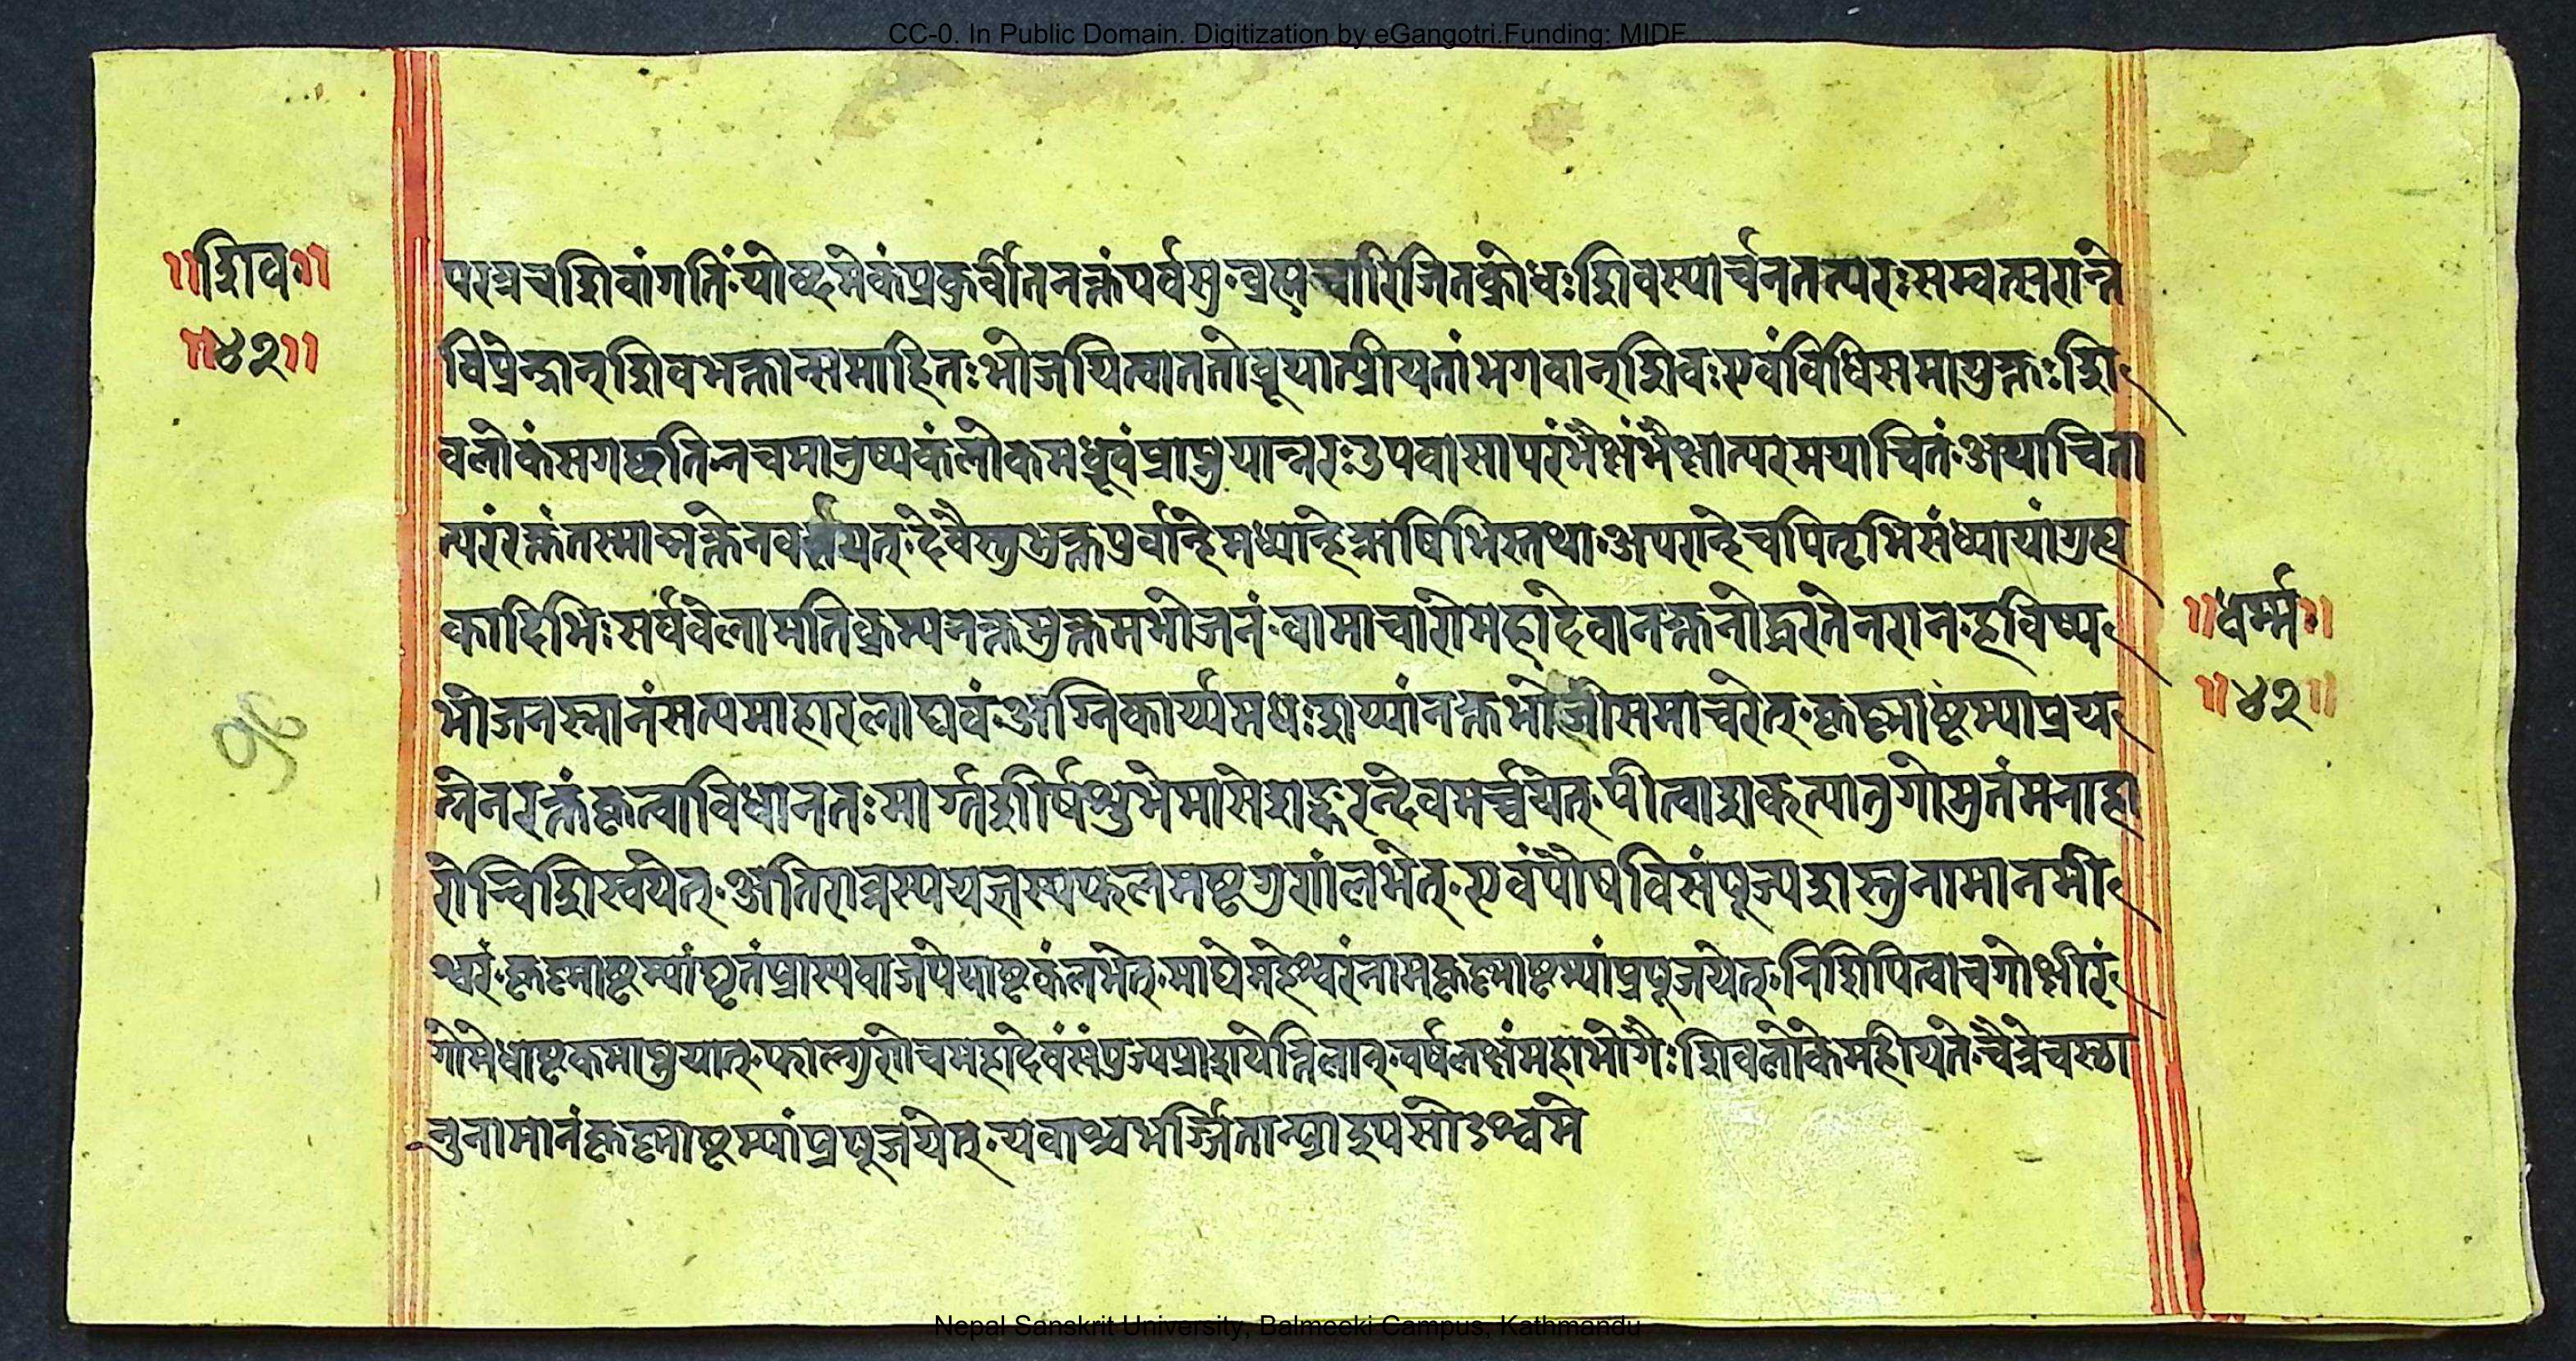 CC-0. In Public Domain. Digitization by eGangotri.Funding: MIDE
॥शिव॥
॥४२॥
परत्रचशिवांगतिं॰योब्दमेकंप्रकुर्वीतनक्तंपर्वसु॰ब्रह्मचारिजितक्रोधःशिवस्यार्चनतत्परःसम्वत्सरान्ते
विप्रेन्द्रान्शिवभक्तान्समाहितःभोजयित्वाततोब्रूयात्प्रीयतांभगवान्शिवःएवंविधिसमायुक्तःशि
वलोकंसगच्छतिनचमानुष्यकंलोकमध्रूवंप्राप्नुयान्नरःउपवासापरंभैक्षंभैक्षात्परमयाचितं॰अयाचिता
त्परंरक्तंतस्मान्नक्तेनवर्तयेत्॰देवैस्तुभुक्तपुर्वान्हेमध्यान्हेऋषिभिस्तथा॰अपरान्हेचपितृभिसंध्यायांगुह्य
कादिभिःसर्षवेलामतिक्रम्यनक्तभुक्तमभोजनं॰वामाचारोमहादेवानक्तनोद्धरतेनरान॰हविष्य
भोजनस्नानंसत्यमाहारलाघवंअग्निकार्य्यमधःशय्यांनक्तभोजीसमाचरेत्॰कृष्णाष्टम्याप्रय
त्नेनरक्तंकृत्वाविधानतःमार्ग्गशीर्षशुभेमासेशङ्करन्देवमर्च्चयेत्॰पीत्वाशकृत्यातुगोमुतंमनाहा
रोन्विशिस्वयेत्॰अतिरात्रस्ययज्ञस्यफलमष्टगुणांलभेत्॰एवंपौषविसंपूज्यशस्तुनामानमी
श्वरं॰कृष्णाष्टम्यांघृतंप्रास्यवाजपेयाष्टकंलभेत्॰माघेमहेश्वरंनामकृष्णाष्टम्यांप्रपूजयेत्॰निशिपित्वाचगोक्षीरं
गोमेधाष्टकमाप्नुयात्॰फाल्गुणोचमहादेवंसंपुज्यप्राशयेत्तिलान्॰वर्षलक्षंमहाभोगैःशिवलोकेमहीयते॰चैत्रेचस्ठा
नुनामानंकृष्णाष्टम्यांप्रपूजयेत्॰यवाश्चभर्ज्जितान्प्राशुपसोऽश्वमे
॥धर्म्म॥
॥४२॥
१६
Nepal Sanskrit University, Balmeeki Campus, Kathmandu